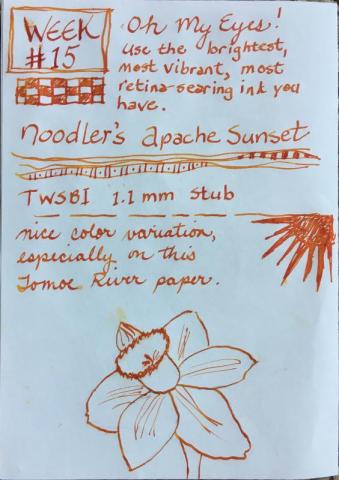 WEEK
#15
Oh My Eyes!
Use the brightest,
most vibrant, most
retina-searing ink you
have.
Noodler's Apache Sunset
TWSBI 1.1 mm stub
nice color variation,
especially on this
Tomoe River paper.